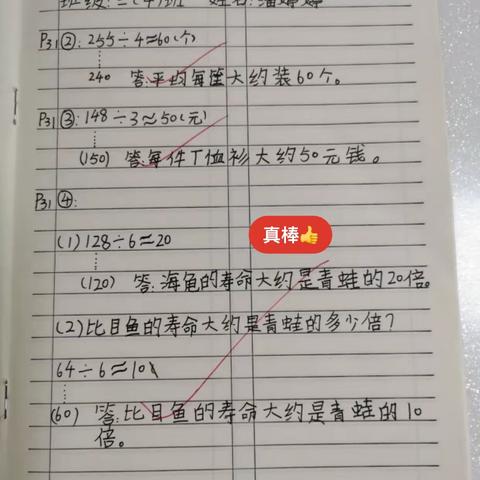 P31②: 255÷4≈60(个)
240 答:平均每筐大约装60个。
P31③: 148÷3≈50(元)
(150) 答:每件T恤衫大约50元钱。
P31④:
真棒👍
(1) 128÷6≈20
(120) 答:海龟的寿命大约是青蛙的20倍。
(2) 比目鱼的寿命大约是青蛙的多少倍?
64÷6≈10
(60) 答:比目鱼的寿命大约是青蛙的10
倍。